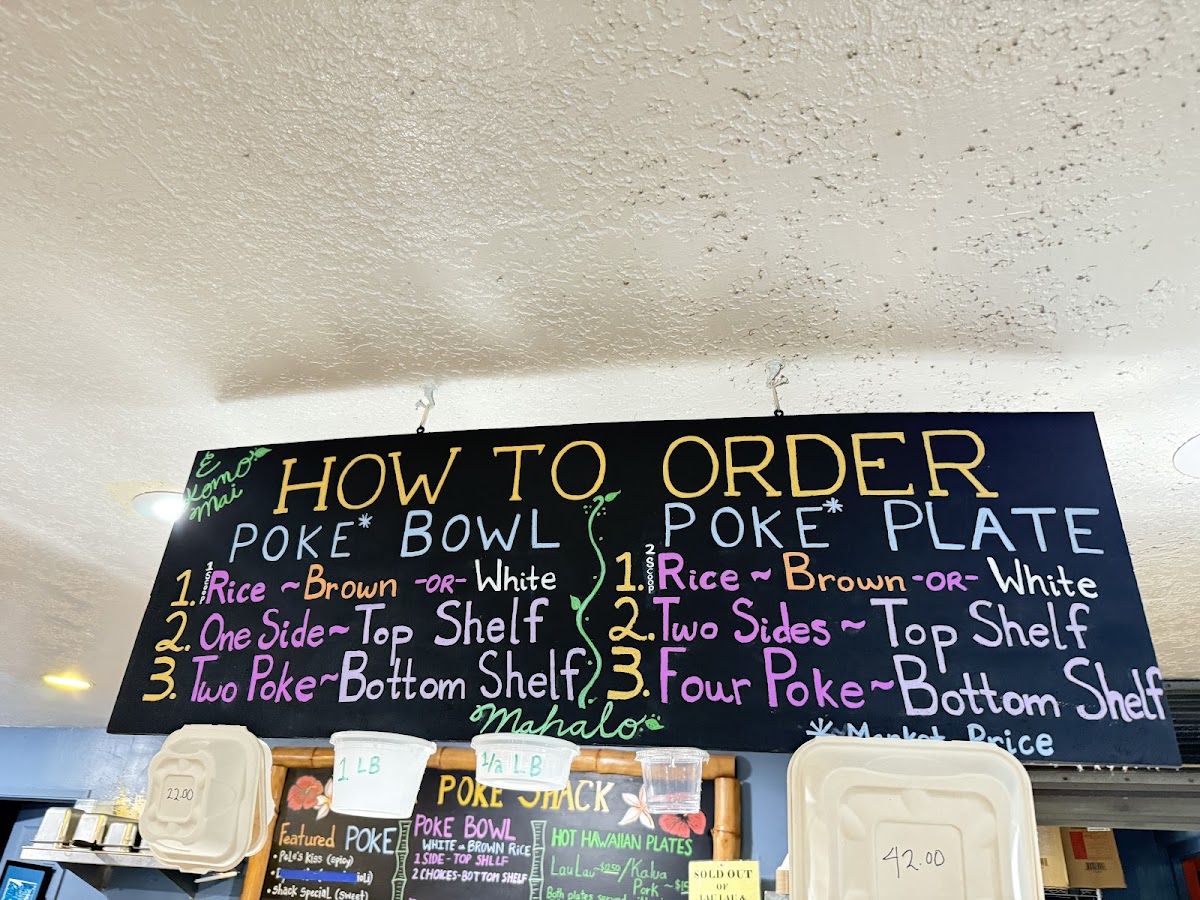 E Komo Mai
HOW TO ORDER
POKE* BOWL
1. 1 Scoop Rice ~ Brown -OR- White
2. One Side ~ Top Shelf
3. Two Poke ~ Bottom Shelf
POKE* PLATE
1. 2 Scoop Rice ~ Brown -OR- White
2. Two Sides ~ Top Shelf
3. Four Poke ~ Bottom Shelf
Mahalo
* Market Price
22.00
1 LB
1/2 LB
42.00
POKE SHACK
Featured POKE
• Pele's Kiss (spicy)
• Shack Special (sweet)
POKE BOWL
WHITE or BROWN RICE
1 SIDE - TOP SHELF
2 CHOICES - BOTTOM SHELF
HOT HAWAIIAN PLATES
LauLau / Kalua
Pork ~
Both plates
SOLD OUT
OF
LAULAU &